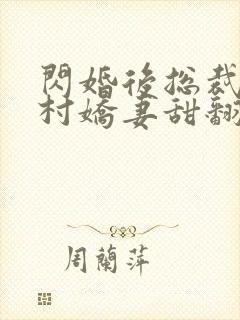 閃婚後總裁
村嬌妻甜翻
周蘭萍